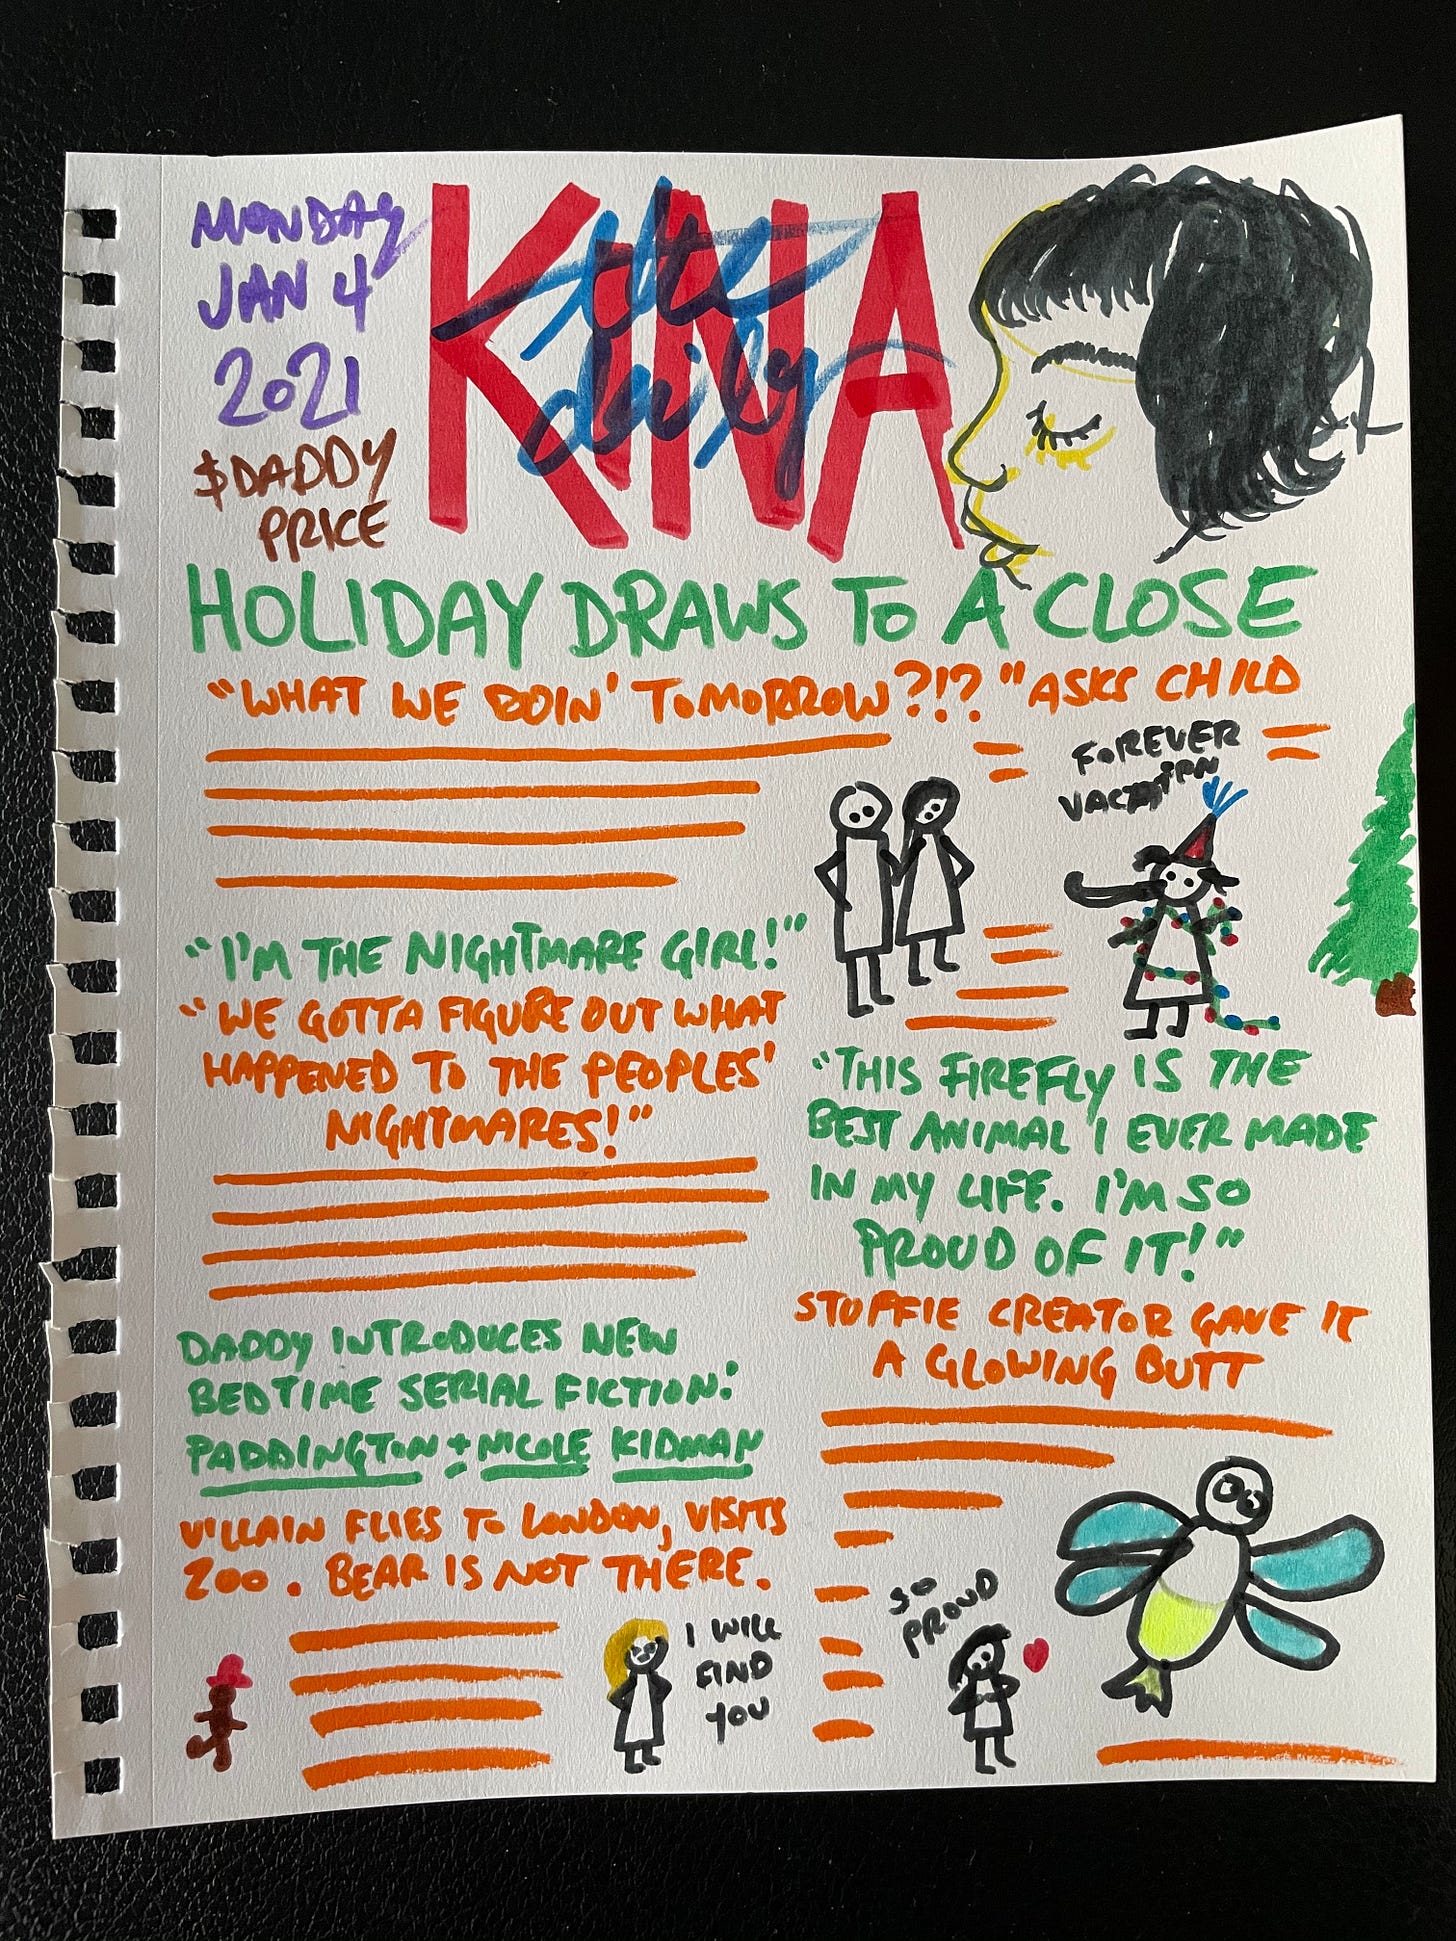 MONDAY
JAN 4
2021
$DADDY
PRICE
the
daily
KINA
HOLIDAY DRAWS TO A CLOSE
"WHAT WE DOIN' TOMORROW?!?" ASKS CHILD
FOREVER
VACATION
"I'M THE NIGHTMARE GIRL!"
"WE GOTTA FIGURE OUT WHAT
HAPPENED TO THE PEOPLES'
NIGHTMARES!"
"THIS FIREFLY IS THE
BEST ANIMAL I EVER MADE
IN MY LIFE. I'M SO
PROUD OF IT!"
STUFFIE CREATOR GAVE IT
A GLOWING BUTT
SO
PROUD
DADDY INTRODUCES NEW
BEDTIME SERIAL FICTION:
PADDINGTON + NICOLE KIDMAN
VILLAIN FLIES TO LONDON, VISITS
ZOO. BEAR IS NOT THERE.
I WILL
FIND
YOU